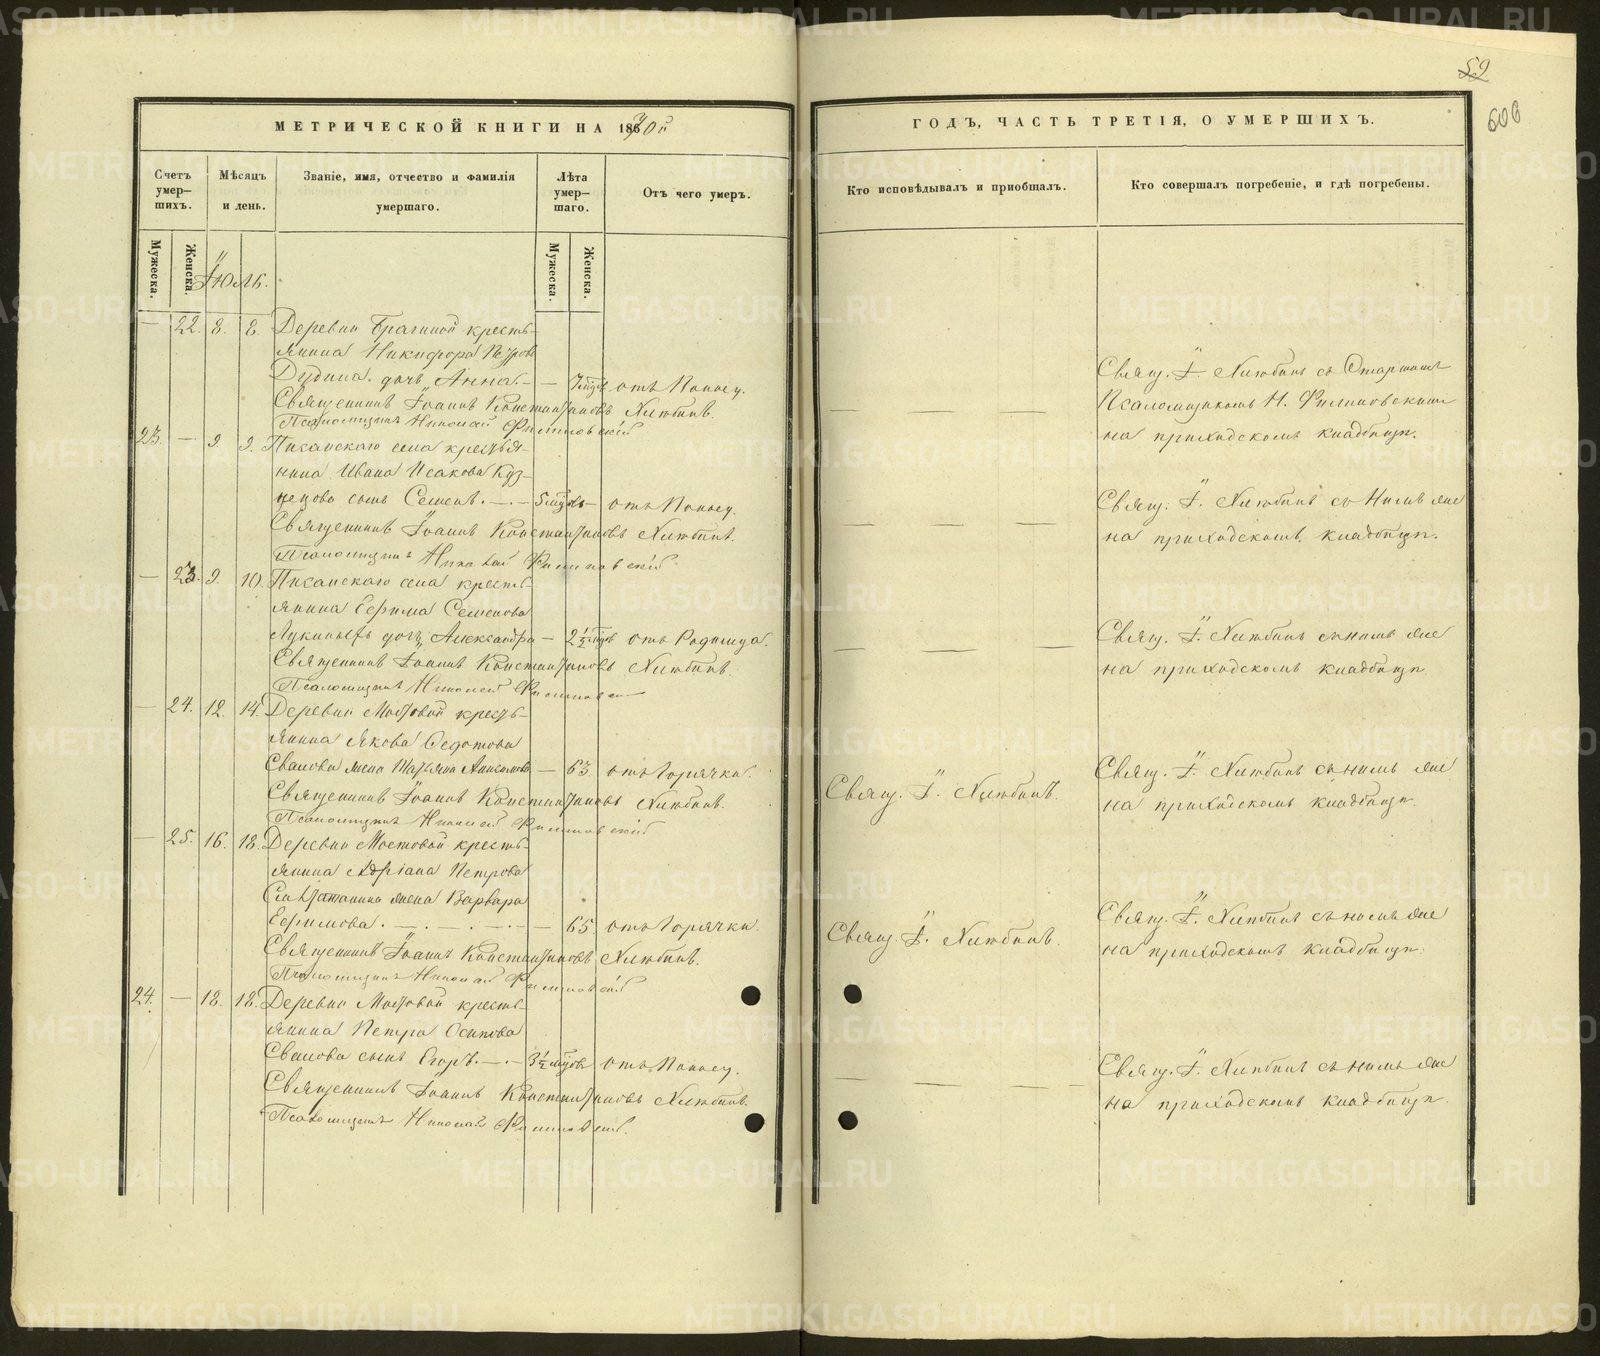 52
606
МЕТРИЧЕСКОЙ КНИГИ НА 1870й
ГОДЪ, ЧАСТЬ ТРЕТІЯ, О УМЕРШИХЪ.
Счетъ умер-шихъ.
Мѣсяцъ и день.
Званіе, имя, отчество и фамилія умершаго.
Лѣта умер-шаго.
Отъ чего умеръ.
Кто исповѣдывалъ и пріобщалъ.
Кто совершалъ погребеніе, и гдѣ погребены.
Мужеска.
Женска.
Мужеска.
Женска.
Іюль.
— 22. 8. 8. Деревни Брагиной кресть-
янина Никифора Петрова
Дудина дочь Анна. — отъ Поносу.
Священникъ Іоаннъ Константиновъ Хлѣбинъ.
Псаломщикъ Николай Филиповскій
Свящ. І. Хлѣбинъ съ
Псаломщикомъ Н. Филиповскимъ
на приходскомъ кладбищѣ.
23. — 9. 9. Писанскаго села крестья-
нина Ивана Исакова Куз-
нецова сынъ Семенъ. — 5 мцовъ — отъ Поносу.
Священникъ Іоаннъ Константиновъ Хлѣбинъ.
Псаломщикъ Николай Филиповскій
Свящ. І. Хлѣбинъ съ нимъ же
на приходскомъ кладбищѣ.
— 23. 9. 10. Писанскаго села кресть-
янина Ефима Семенова
дочь Александра — 2½ отъ Родимца.
Священникъ Іоаннъ Константиновъ Хлѣбинъ.
Псаломщикъ Николай
Свящ. І. Хлѣбинъ съ нимъ же
на приходскомъ кладбищѣ
— 24. 12. 14. Деревни Мостовой кресть-
янина Якова Ѳедотова
жена Татьяна — 63. отъ Горячки.
Священникъ Іоаннъ Константиновъ Хлѣбинъ.
Псаломщикъ Николай Филиповскій
Свящ. І. Хлѣбинъ.
Свящ. І. Хлѣбинъ съ нимъ же
на приходскомъ кладбищѣ.
— 25. 16. 18. Деревни Мостовой кресть-
янина Адріана Петрова
жена Варвара
Ефимова. — 65. отъ Горячки.
Священникъ Іоаннъ Константиновъ Хлѣбинъ.
Псаломщикъ Николай Филиповскій
Свящ. І. Хлѣбинъ.
Свящ. І. Хлѣбинъ съ нимъ же
на приходскомъ кладбищѣ.
24. — 18. 18. Деревни Мостовой кресть-
янина Петра Осипова
сынъ Егоръ. — 3½ мцовъ отъ Поносу.
Священникъ Іоаннъ Константиновъ Хлѣбинъ.
Псаломщикъ Николай
Свящ. І. Хлѣбинъ съ нимъ же
на приходскомъ кладбищѣ.
METRIKI.GASO-URAL.RU